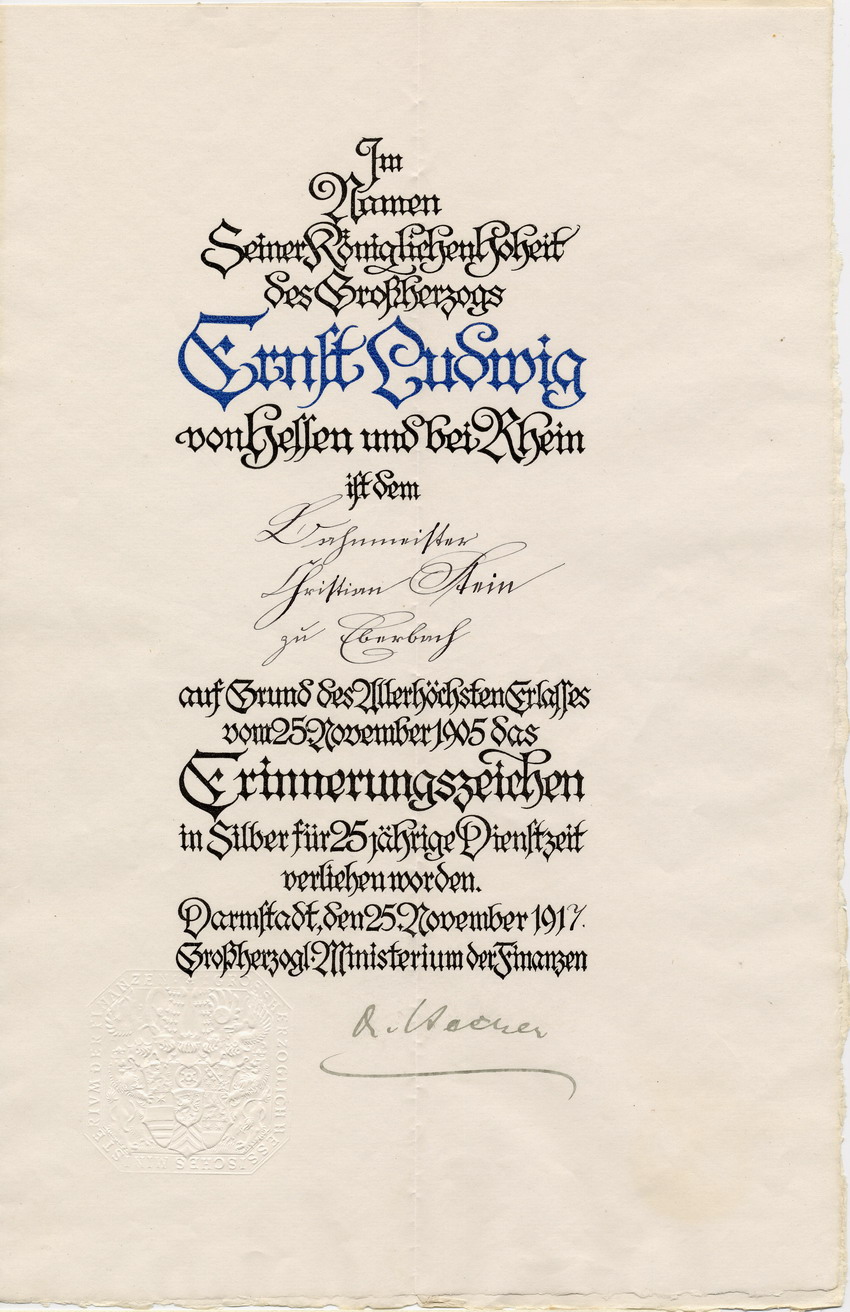 Im
Namen
Seiner Königlichen Hoheit
des Großherzogs
Ernst Ludwig
von Hessen und bei Rhein
ist dem
Bahnmeister
Christian Stein
zu Eberbach
auf Grund des Allerhöchsten Erlasses
vom 25. November 1905 das
Erinnerungszeichen
in Silber für 25 jährige Dienstzeit
verliehen worden.
Darmstadt, den 25. November 1917.
Großherzogl. Ministerium der Finanzen